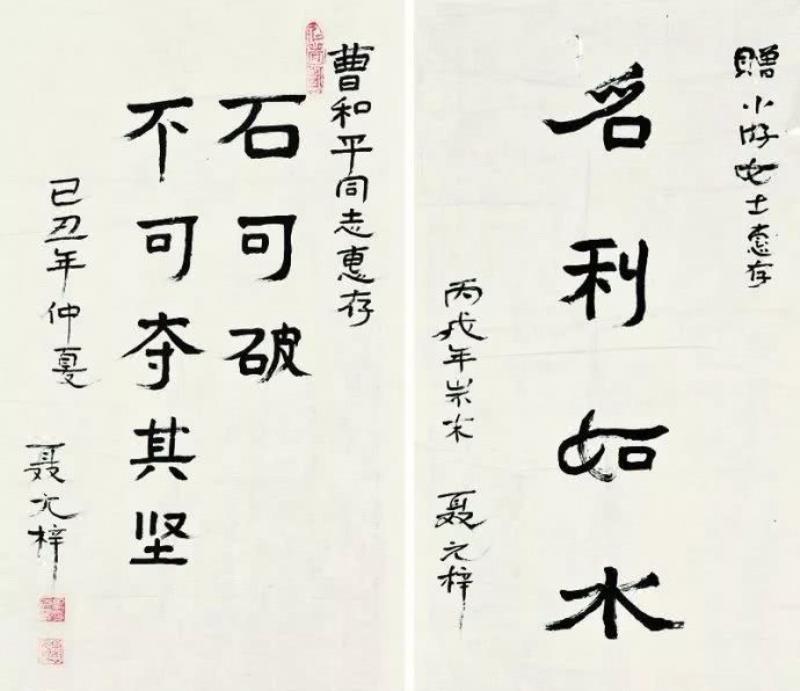 曹和平同志惠存
石可破
不可夺其坚
己丑年仲夏 聂元梓
赠小游女士惠存
名利如水
丙戌年岁末 聂元梓